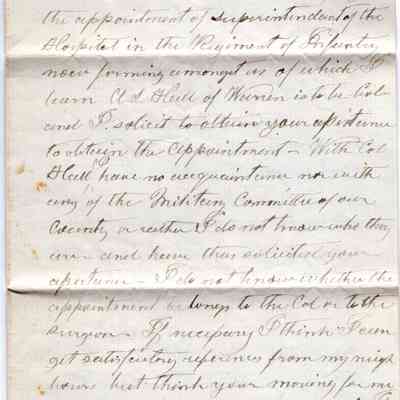 the appointment of superintendant of the
Hospital in the Regiment of Infantry
now forming amongst us of which I
learn A S Hall of Warren is to be Col
and I solicit to obtain your assistance
to obtain the appointment - With Col
Hall have no acquaintance nor with
any of the Military Committee of our
County or rather I do not know who they
are - and have thus solicited your
assistance - I do not know whether the
appointment belongs to the Col or to the
Surgeon - If necessary I think I can
get satisfactory references from my neigh
bours but think your moving for me